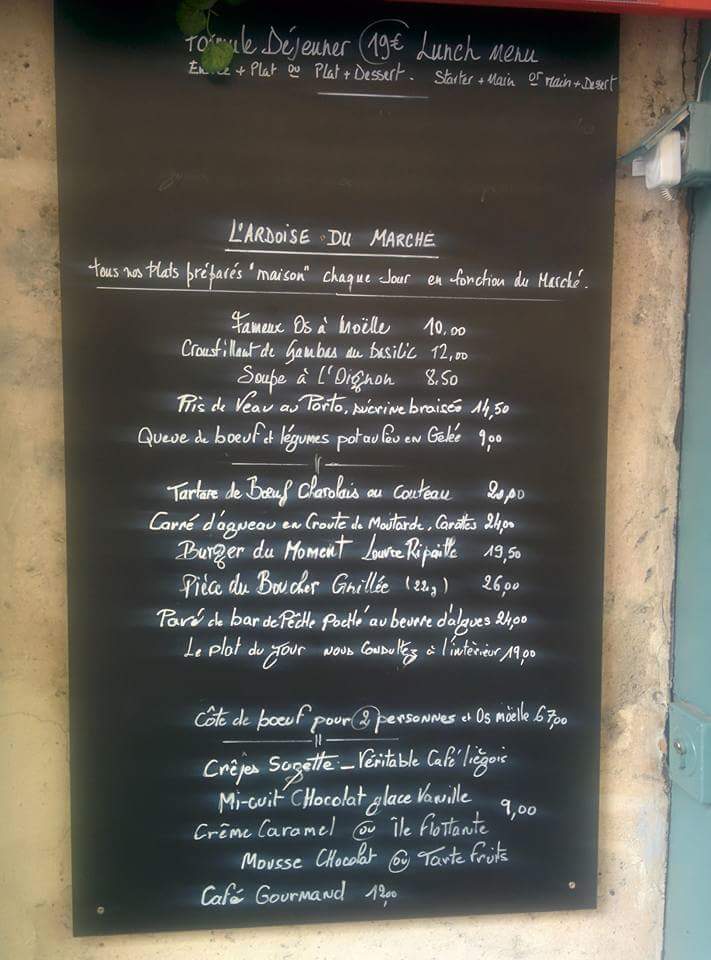 Formule Déjeuner 19€ Lunch menu
Entrée + Plat ou Plat + Dessert. Starter + Main or main + Desert
L'ARDOISE DU MARCHE
tous nos Plats préparés "maison" chaque Jour en fonction du Marché.
Fameux Os à Moëlle 10,00
Croustillant de Gambas au basilic 12,00
Soupe à l'Oignon 8,50
Ris de Veau au Porto, sucrine braisée 14,50
Queue de boeuf et légumes pot au feu en Gelée 9,00
Tartare de Bœuf Charolais au Couteau 20,00
Carré d'agneau en Croute de Moutarde, Carottes 24,00
Burger du Moment Louvre Ripaille 19,50
Pièce du Boucher Grillée 26,00
Pavé de bar de Pêche Poché au beurre d'algues 24,00
Le plat du Jour nous consultez à l'intérieur 19,00
Côte de boeuf pour 2 personnes et Os moëlle 67,00
Crêpes Suzette _ Véritable Café liégois
Mi-cuit CHocolat glace Vanille
9,00
Crême Caramel ou Île Flottante
Mousse CHocolat ou Tarte fruits
Café Gourmand 12,00